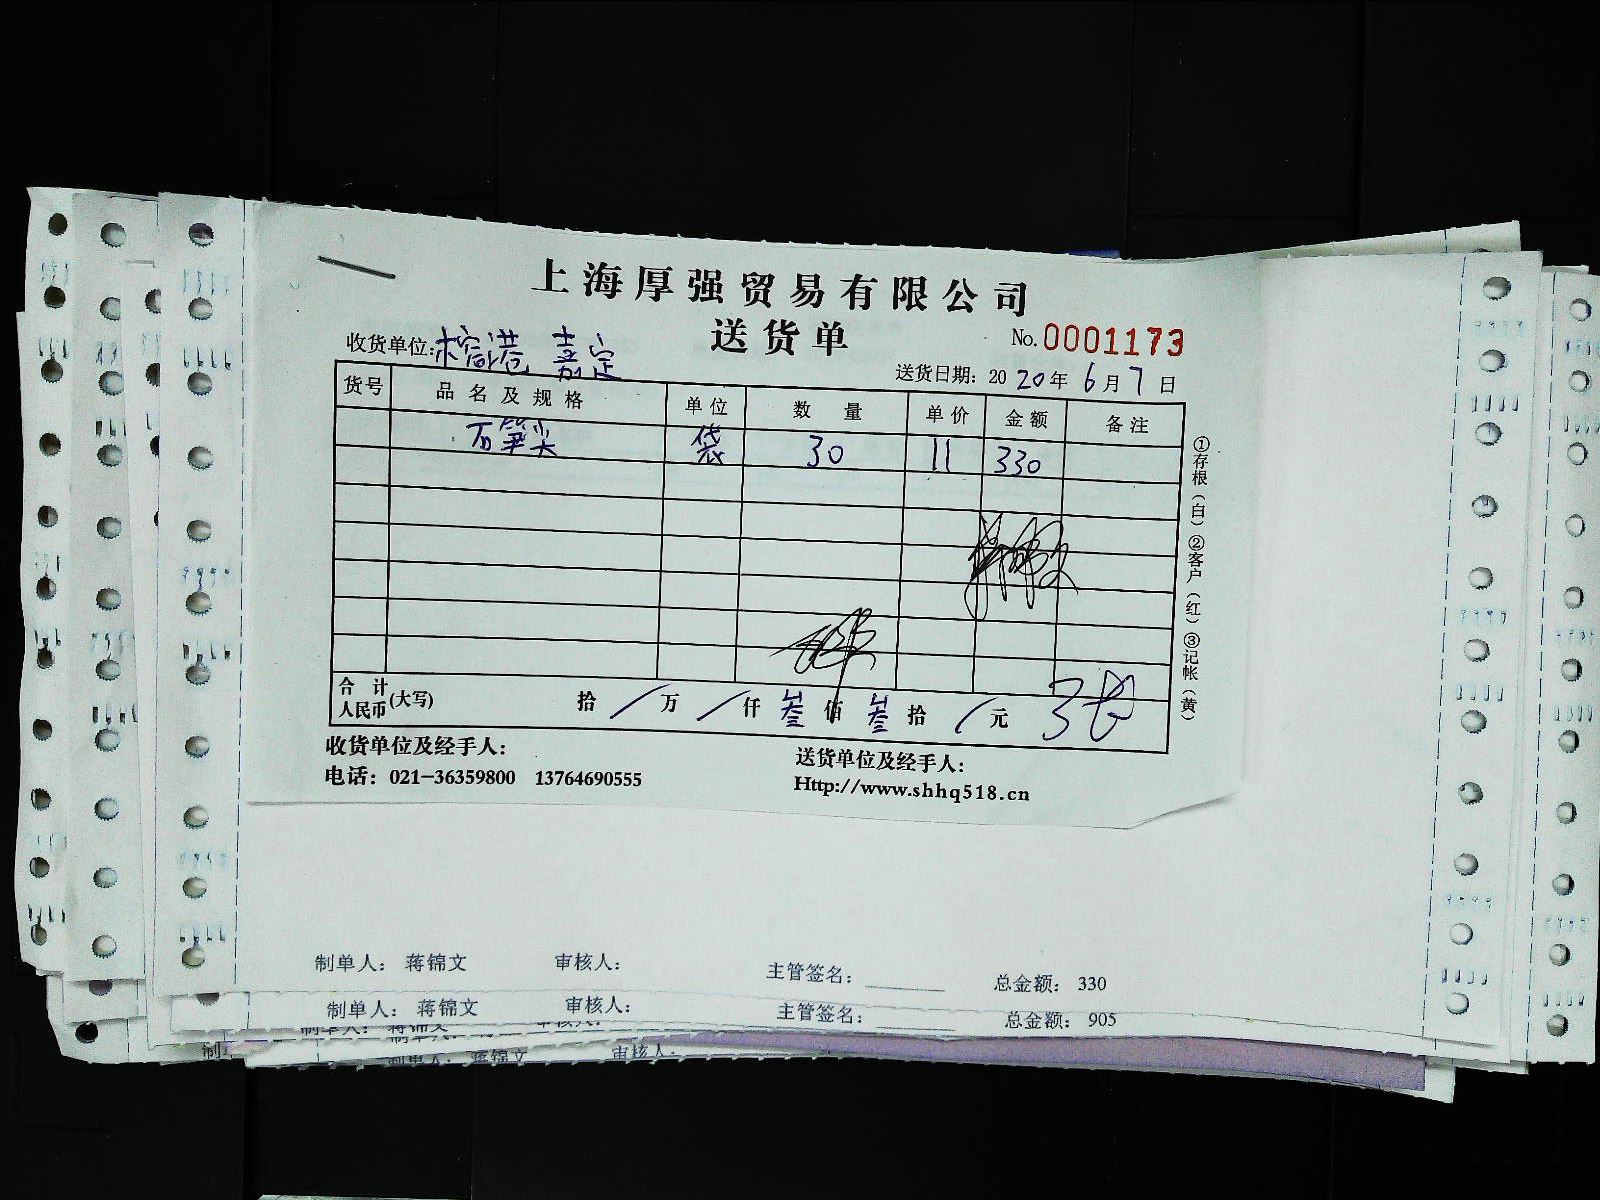 上海厚强贸易有限公司
送货单
No. 0001173
收货单位: 榕港 嘉定
送货日期: 2020年6月7日
货号 品名及规格 单位 数量 单价 金额 备注
石笋尖 袋 30 11 330
合计人民币(大写) 拾 / 万 / 仟 叁 佰 叁 拾 / 元
①存根(白)②客户(红)③记帐(黄)
收货单位及经手人:
送货单位及经手人:
电话: 021-36359800 13764690555
Http://www.shhq518.cn
制单人: 蒋锦文 审核人: 主管签名: 总金额: 330
制单人: 蒋锦文 审核人: 主管签名: 总金额: 905
制单人: 蒋锦文 审核人:
制单人: 蒋锦文 审核人: